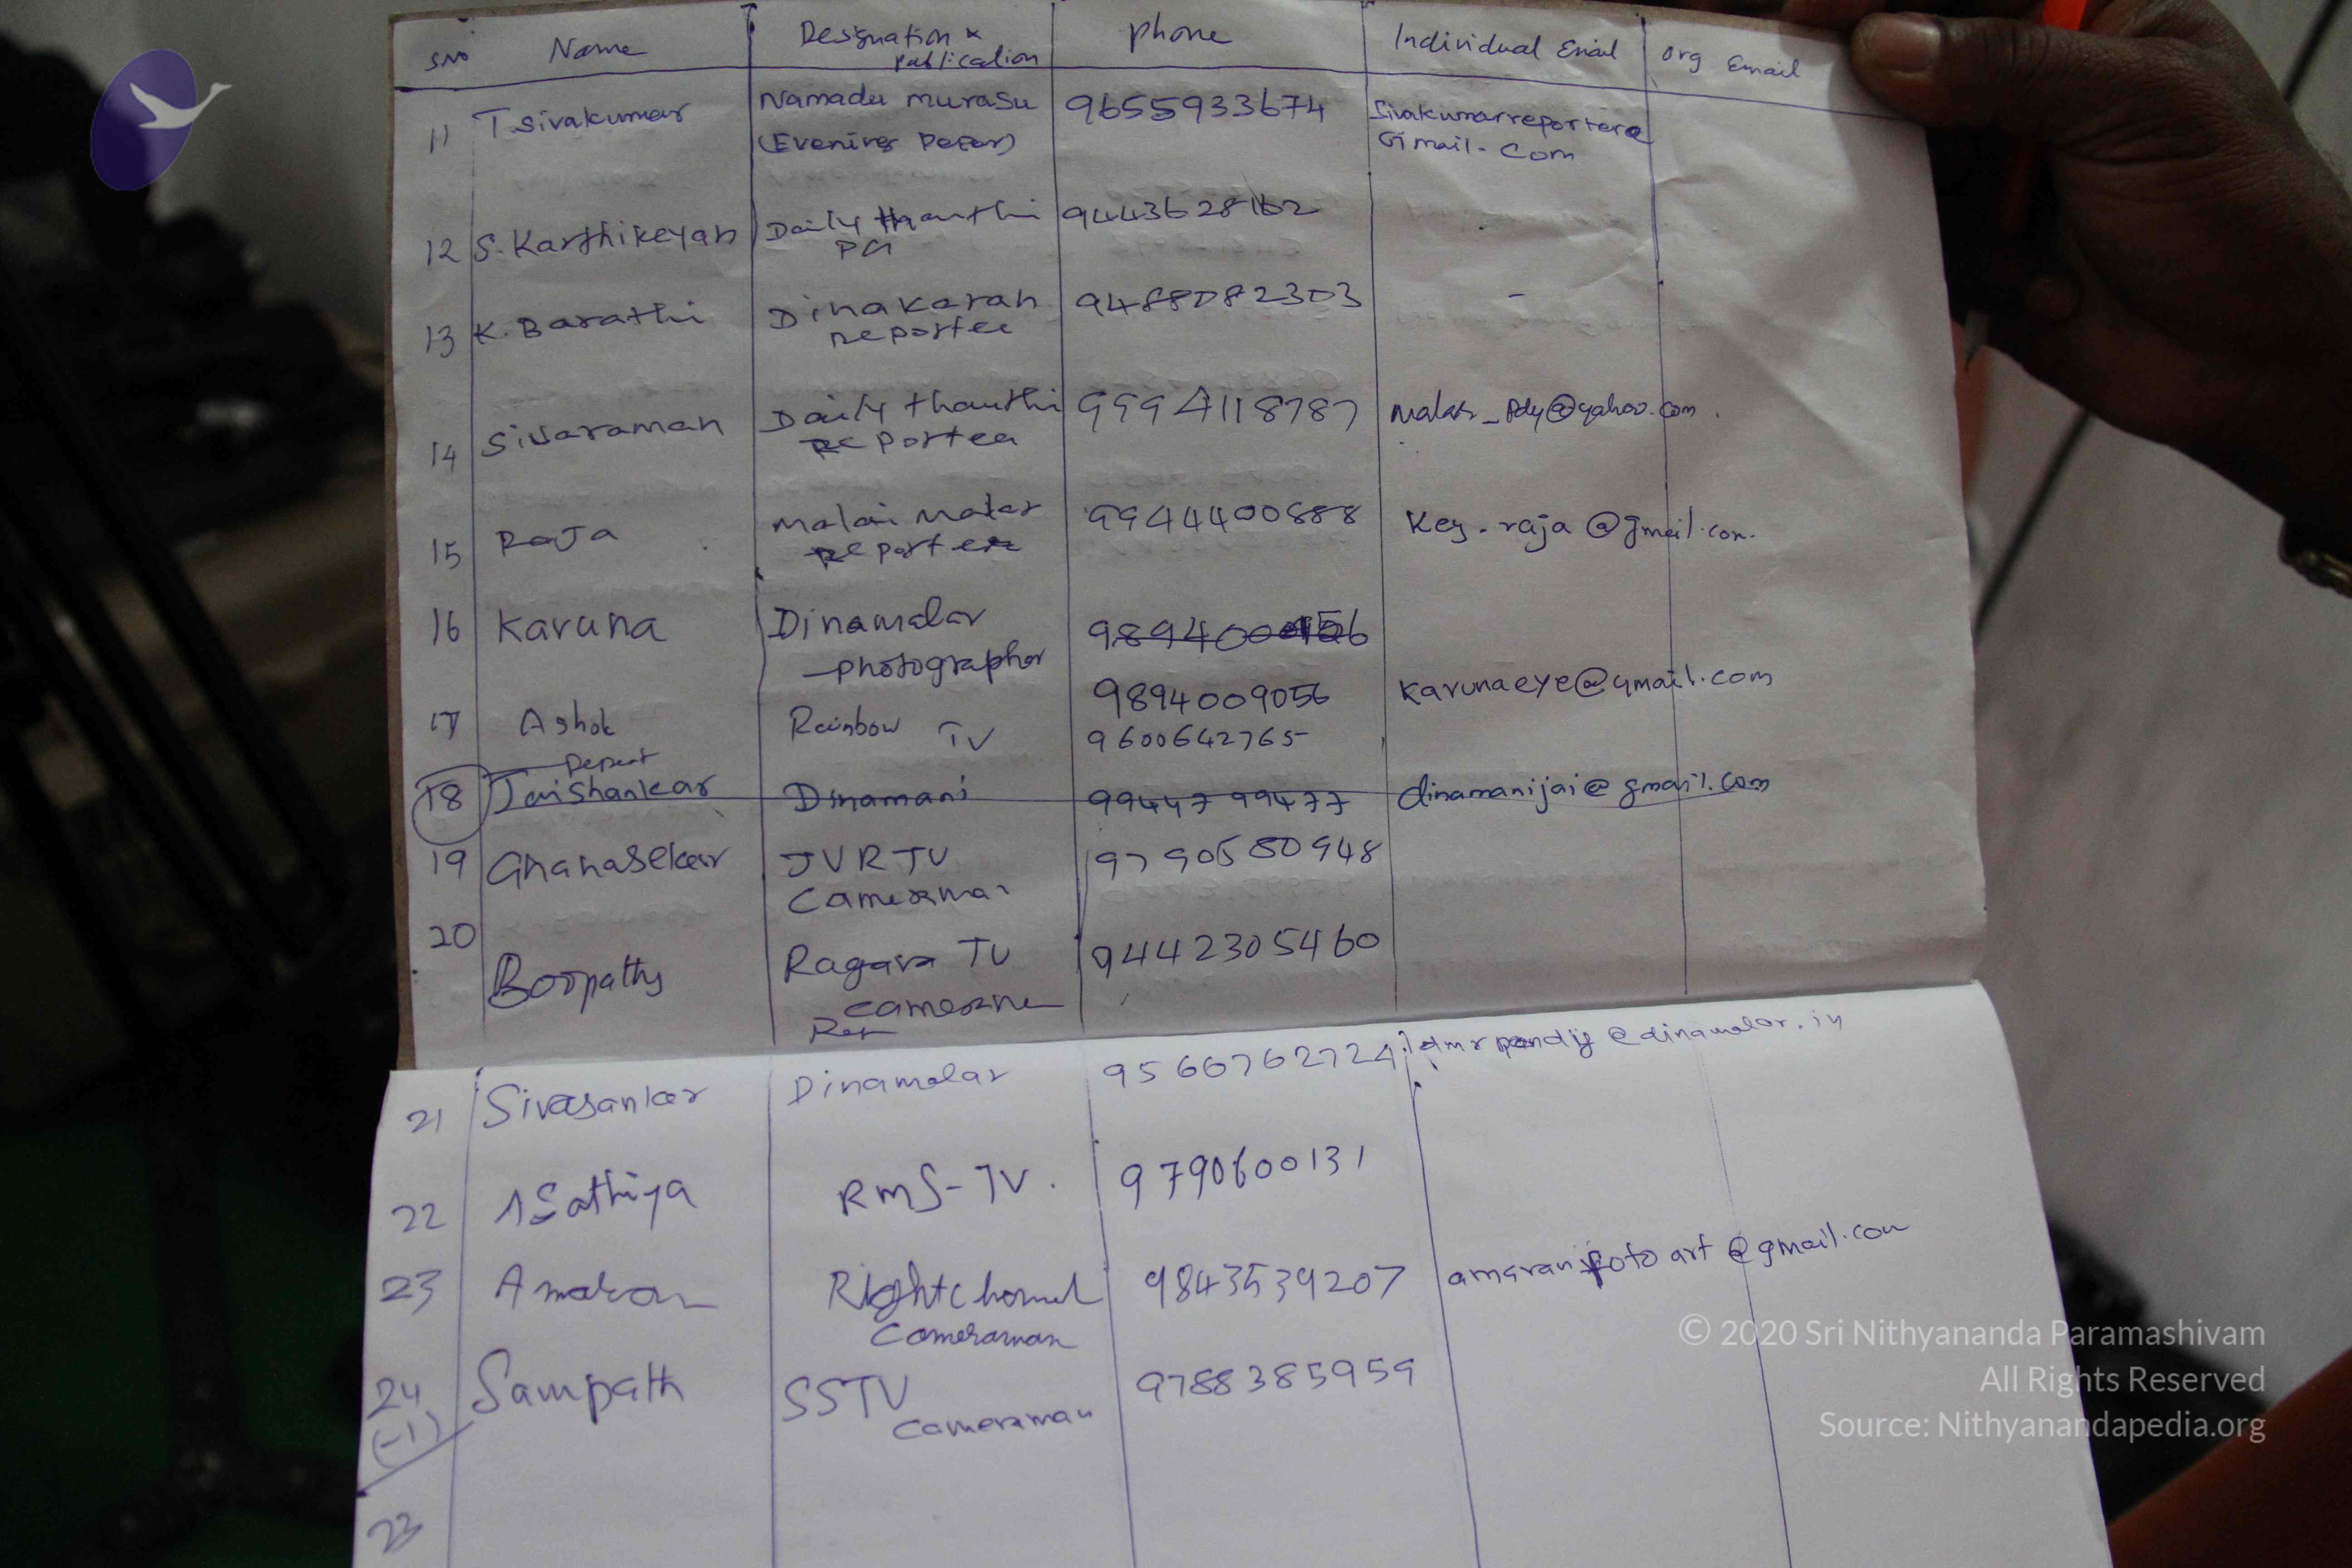 SNO Name Designation & Publication phone Individual Email Org Email
11 T sivakumar Namadu murasu 9655933674 Sivakumarreporter@
(Evening Paper) Gmail.com
12 S. Karthikeyan Daily thanthi 9443628162
PG
13 K. Barathi Dinakaran 9488082303 -
Reporter
14 Sivaraman Daily thanthi 9994118787 @yahoo.com.
Reporter
15 Raja Malai Malar 9944400888 Key.raja@gmail.com.
Reporter
16 Karuna Dinamalar
photographer
9894009056 Karunaeye@gmail.com
17 Ashok Rainbow TV 9600642765
Repeat
18 Jaishankar Dinamani 99447 99477 dinamanijai@gmail.com
19 Gnanasekar JVR TV 9790580948
Cameraman
20 Boopathy TV 9442305460
21 Sivasankar Dinamalar 9566762724 @dinamalar.in
22 Sathiya RMS-TV. 9790600131
23 Amaran Right channel 9843539207 amaranfotoart@gmail.com
Cameraman
24 Sampath SSTV 9788385959
(-1) Cameraman
23
© 2020 Sri Nithyananda Paramashivam
All Rights Reserved
Source: Nithyanandapedia.org